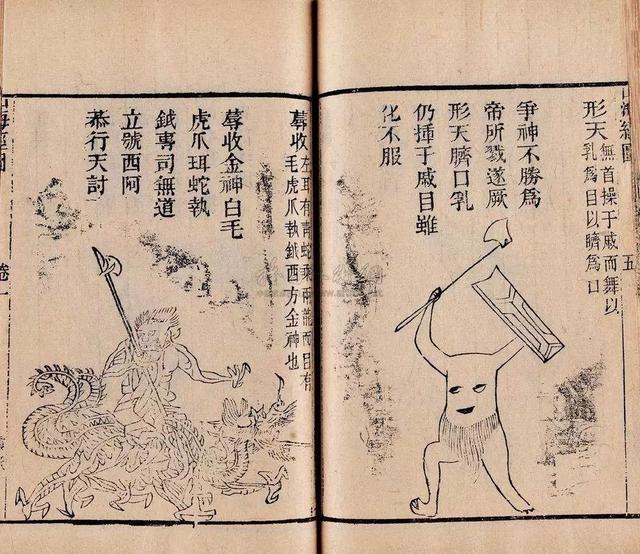 山海經圖
五
形天 無首操于戚而舞以
乳為目以臍為口
爭神不勝為
帝所戮遂厥
形天臍口乳
仍揮于戚目雖
化不服
蓐收 左耳有青蛇乘兩龍面目有
毛虎爪執鉞西方金神也
蓐收金神白毛
虎爪珥蛇執
鉞專司無道
立號西阿
恭行天討
山海經圖
卷一